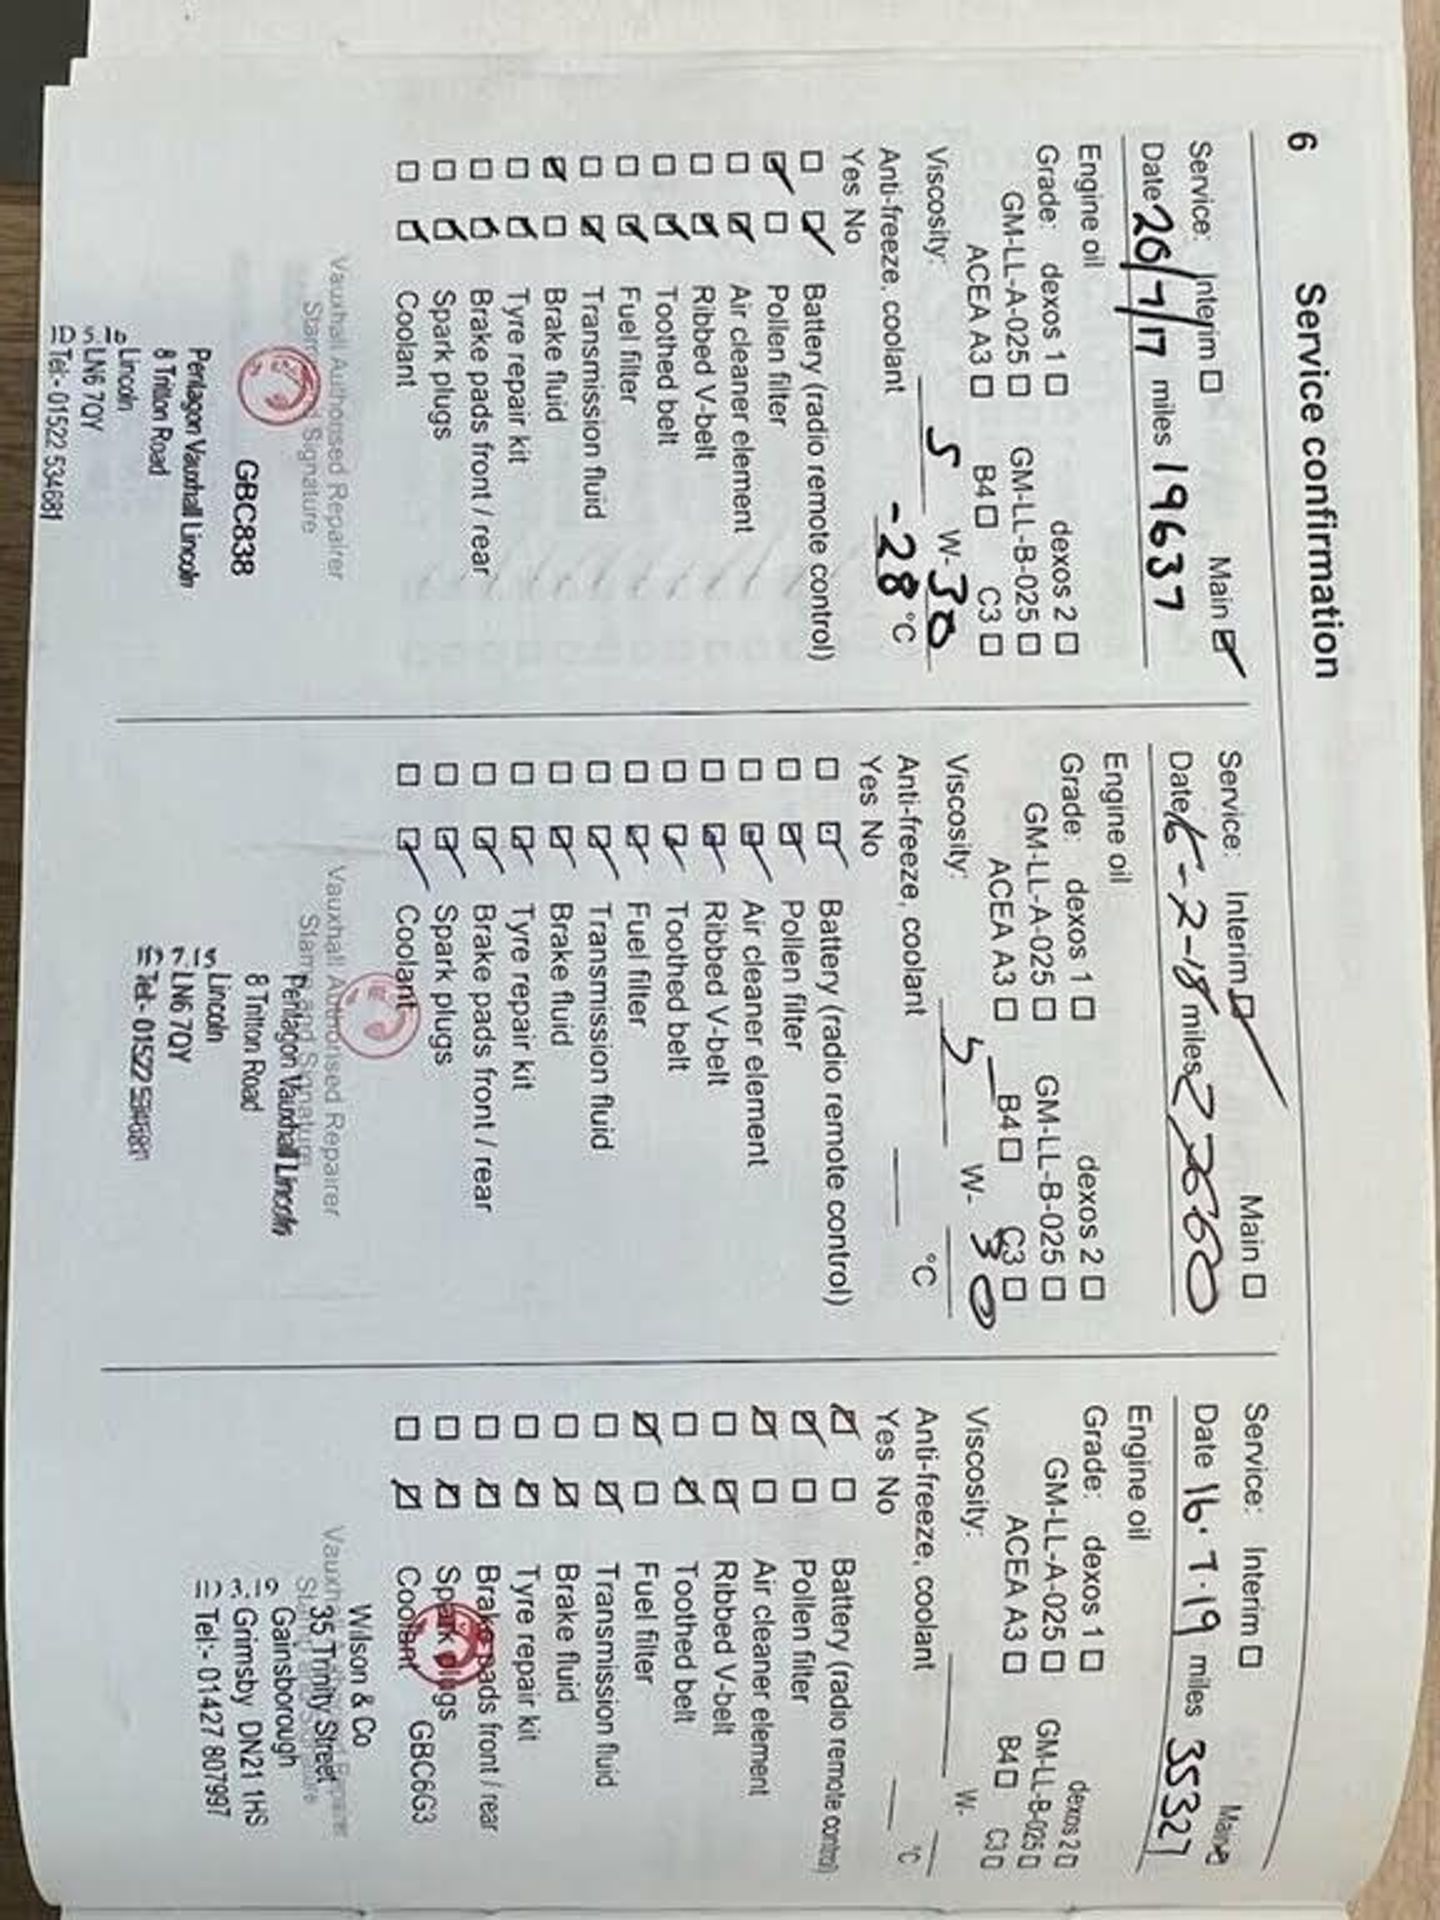 6 Service confirmation
Service: Interim ☐ Main ☑
Date 26/7/17 miles 19637
Engine oil
Grade: dexos 1 ☐ dexos 2 ☐
GM-LL-A-025 ☐ GM-LL-B-025 ☐
ACEA A3 ☐ B4 ☐ C3 ☐
Viscosity: 5 W-30
Anti-freeze, coolant -28 °C
Yes No
☐ ☑ Battery (radio remote control)
☑ ☐ Pollen filter
☐ ☑ Air cleaner element
☐ ☑ Ribbed V-belt
☐ ☑ Toothed belt
☐ ☑ Fuel filter
☐ ☑ Transmission fluid
☑ ☐ Brake fluid
☐ ☑ Tyre repair kit
☐ ☑ Brake pads front / rear
☐ ☑ Spark plugs
☐ ☑ Coolant
Vauxhall Authorised Repairer
Signature
GBC838
Pentagon Vauxhall Lincoln
8 Tritton Road
Lincoln
LN6 7QY
Tel:- 01522 534681
Service: Interim ☑ Main ☐
Date -2-18 miles
Engine oil
Grade: dexos 1 ☐ dexos 2 ☐
GM-LL-A-025 ☐ GM-LL-B-025 ☐
ACEA A3 ☐ B4 ☐ C3 ☐
Viscosity: 5 W-30
Anti-freeze, coolant °C
Yes No
☐ ☑ Battery (radio remote control)
☐ ☑ Pollen filter
☐ ☑ Air cleaner element
☐ ☑ Ribbed V-belt
☐ ☑ Toothed belt
☐ ☑ Fuel filter
☐ ☑ Transmission fluid
☐ ☑ Brake fluid
☐ ☑ Tyre repair kit
☐ ☑ Brake pads front / rear
☐ ☑ Spark plugs
☐ ☑ Coolant
Vauxhall Authorised Repairer
Stamp and Signature
Pentagon Vauxhall Lincoln
8 Tritton Road
Lincoln
LN6 7QY
Tel:- 01522 534681
Service: Interim ☐ Main ☑
Date 16.7.19 miles 35327
Engine oil
Grade: dexos 1 ☐ dexos 2 ☐
GM-LL-A-025 ☐ GM-LL-B-025 ☐
ACEA A3 ☐ B4 ☐ C3 ☐
Viscosity: W-
Anti-freeze, coolant °C
Yes No
☑ ☐ Battery (radio remote control)
☑ ☐ Pollen filter
☑ ☐ Air cleaner element
☐ ☑ Ribbed V-belt
☐ ☑ Toothed belt
☑ ☐ Fuel filter
☐ ☑ Transmission fluid
☐ ☑ Brake fluid
☐ ☑ Tyre repair kit
☐ ☑ Brake pads front / rear
☐ ☑ Spark plugs
☐ ☑ Coolant GBC6G3
Wilson & Co
35 Trinity Street
Gainsborough
Grimsby DN21 1HS
Tel:- 01427 807997